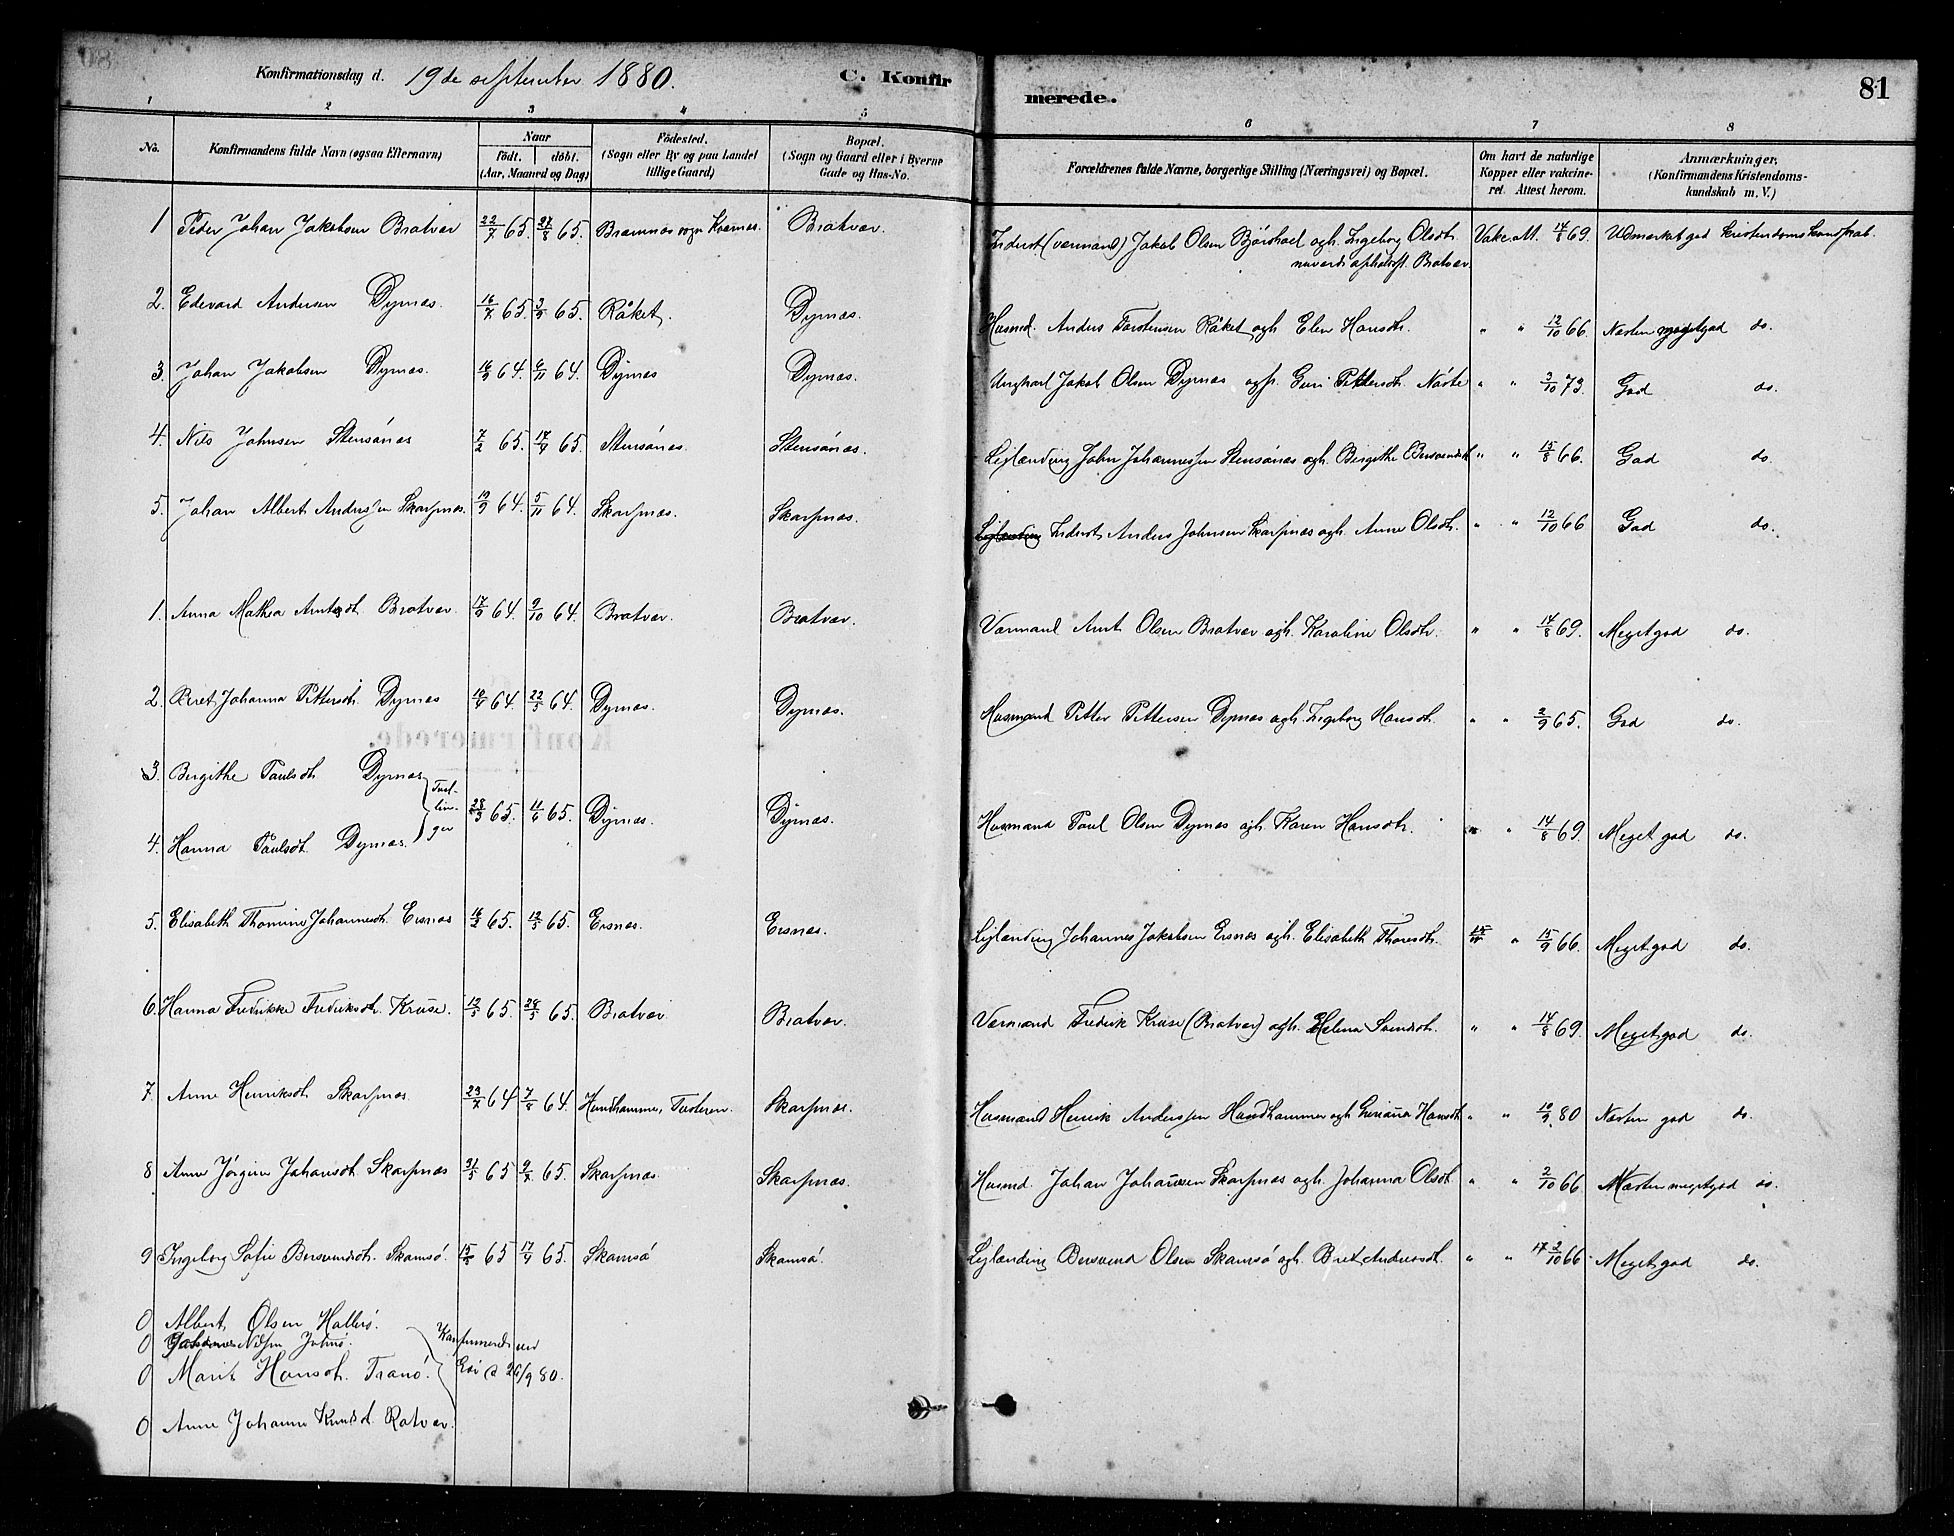 Konfirmationsdag d. 19de september 1880. C. Konfirmerede. 81
1 2 3 4 5 6 7 8
No. Konfirmandens fulde Navn (ogsaa Efternavn) Naar født. døbt. (Aar, Maaned og Dag) Fødested. (Sogn eller By og paa Landet tillige Gaard) Bopæl. (Sogn og Gaard eller i Byerne Gade og Hus-No. Forældrenes fulde Navne, borgerlige Stilling (Næringsvei) og Bopæl. Om havt de naturlige Kopper eller vakcineret. Attest herom. Anmærkninger, (Konfirmandens Kristendomskundskab m. V.)
1 Peder Johan Jakobsen Bratvær 22/7 65. 27/8 65. Bremnæs sogn Bratvær. Inderst (værmand) Jakob Olsen ogh. Ingeborg Olsdtr. Vakc. att. 14/8 69. Udmærket god Kristendomskundskab.
Bratvær
2. Edevard Andersen Dyrnæs. 16/7 65. 3/9 65. Råket. Dyrnæs. Husmd. Anders Torstensen Råket ogh Elen Hansdtr. " " 12/10 66. Næsten megetgod do.
3. Johan Jakobsen Dyrnæs. 16/9 64. 6/11 64. Dyrnæs Dyrnæs. Ungkarl Jakob Olsen Dyrnæs ogp. Guri Pettersdtr. " " 3/10 73. God do.
4. Nils Johnsen Stensønæs 7/2 65. 17/4 65. Stensønæs. Stensønæs. Leilænding John Johannessen Stensønæs ogh. Bergithe Bersvendsdt " " 15/8 66. God do.
5. Johan Albert Anderssen Skarpnæs. 19/9 64. 5/11 64. Skarpnæs. Skarpnæs. Leilænding Inderst Anders Johnsen Skarpnæs ogh. Anne Olsdtr. " " 12/10 66 God do.
1. Anna Mathea Arntsdt. Bratvær. 17/9 64. 9/10 64. Bratvær. Bratvær. Værmand Arnt Olsen Bratvær ogh. Karoline Olsdtr. " " 14/8 69. Meget god do.
2. Beret Johanna Pettersdt. Dyrnæs 64. 22/5 64. Dyrnæs. Dyrnæs. Husmand Petter Pettersen Dyrnæs ogh. Ingeborg Hansdtr. " " 2/9 65. God do.
3. Bergithe Paulsdt. Dyrnæs
Tvillinger 28/3 65. 11/6 65. Dyrnæs. Dyrnæs. Husmand Paul Olsen Dyrnæs ogh. Karen Hansdtr. " " 14/8 69. Meget god do.
4. Hanna Paulsdt. Dyrnæs.
5. Elisabeth Thomine Johannesdt. Ersnæs 16/2 65. 12/3 65. Ersnæs. Ersnæs. Leilænding Johannes Jakobsen Ersnæs ogh. Elisabeth Thoresdtr. " 15/9 66. Meget god do.
6. Hanna Fredrikke Fredriksdtr. Kruse. 12/3 65. 28/5 65. Bratvær Bratvær. Værmand Fredrik Kruse (Bratvær) ogh. Helena Svendsdtr. " " 14/8 69. Meget god do.
7. Anne Henriksdt. Skarpnæs 23/7 64 7/8 64. Hundhammer, Tusteren. Skarpnæs. Husmand Henrik Anderssen Hundhammer ogh Hansdtr " " 10/9 80 Næsten god do.
8 Anne Jørgine Johansdt. Skarpnæs 21/5 65 9/7 65. Skarpnæs. Skarpnæs. Husmd. Johan Johansen Skarpnæs ogh. Johanna Olsdt " " 2/10 66 Næsten megetgod do.
9 Ingeborg Sofie Bersvendsdtr. Skamsø. 65 17/4 65. Skamsø Skamsø. Leilænding Bersvend Olsen Skamsø ogh. Beret Andersdtr. " " 2/10 66. Meget god do.
0 Albert Olsen Hallersø.
0 Nilsen Konfirmerede ved
0 Marit Hansdtr. Tranø. Edø d 26/9 80.
0 Anne Johanne Knudsd. Ratvær.